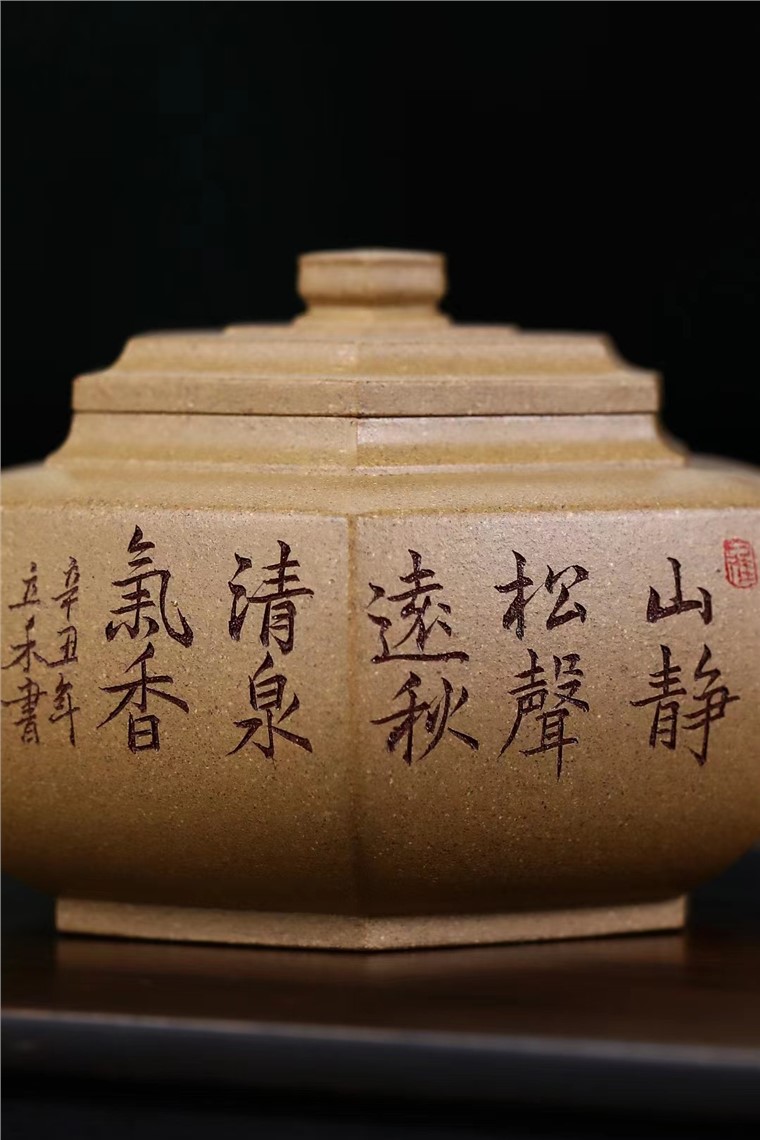 山静
松聲
遠秋
清泉
氣香
辛丑年
立禾書